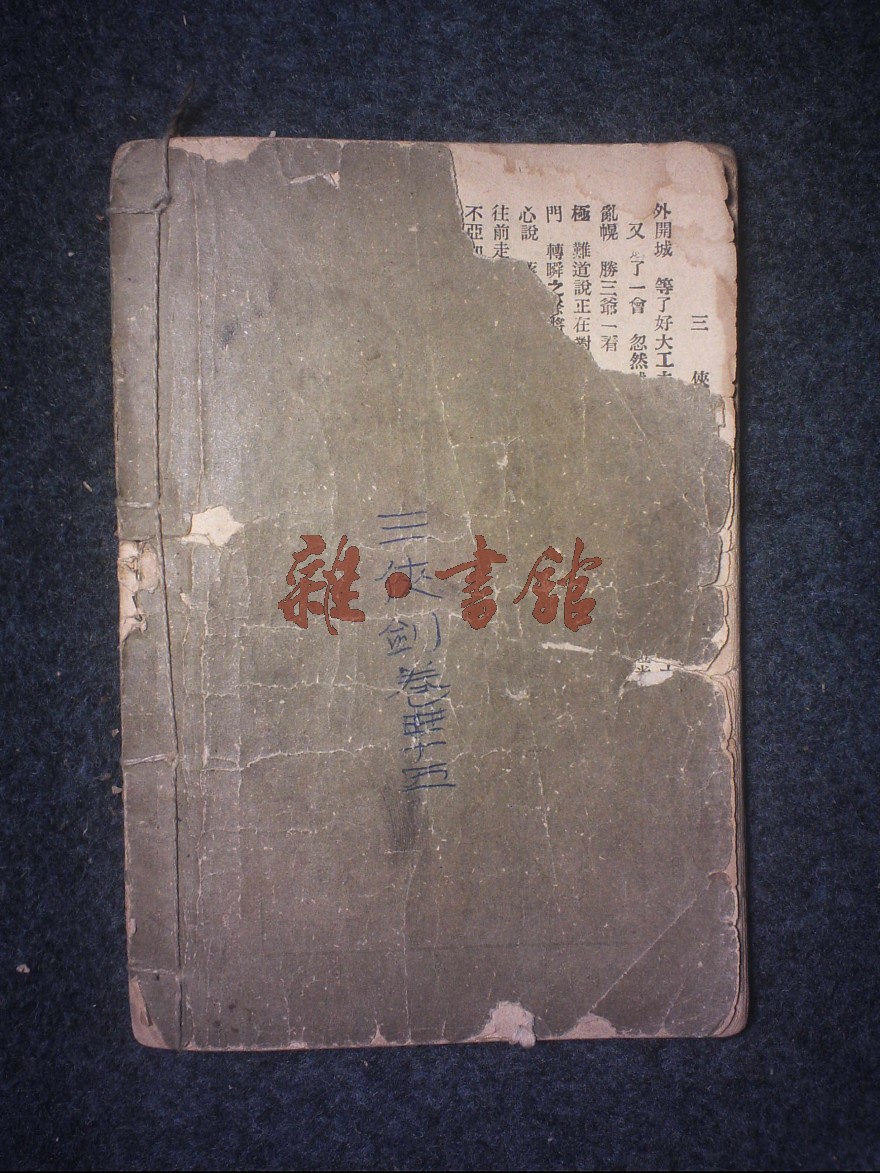 三俠
外開城　等了好大工
又　了一會　忽然
亂幌　勝三爺一看
極　難道說正在對
門　轉瞬之
心說
往前走
不亞
三侠剑卷四十五
雜·書館